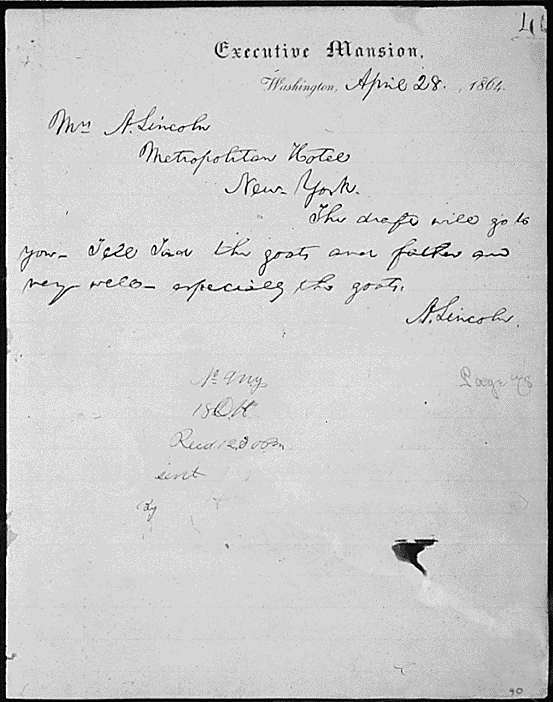 Executive Mansion,
Washington, April 28. , 1864.
Mrs A. Lincoln
Metropolitan Hotel
New-York.
The draft will go to
you— Tell Tad the goats and father are
very well— especially the goats.
A. Lincoln.
Page 78
18 OH
sent
90